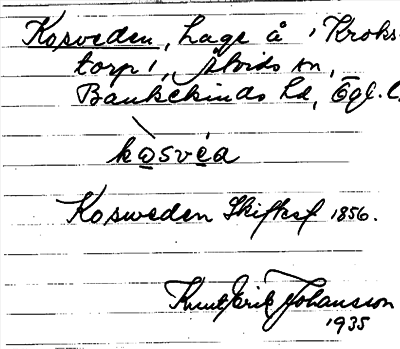 Kosveden, hage å 'Kroks-
torp', Åtvids sn,
Bankekinds hd, Ögl. l.
kosvéa
Kosweden Skifksf 1856.
Knut Erik Johansson
1935